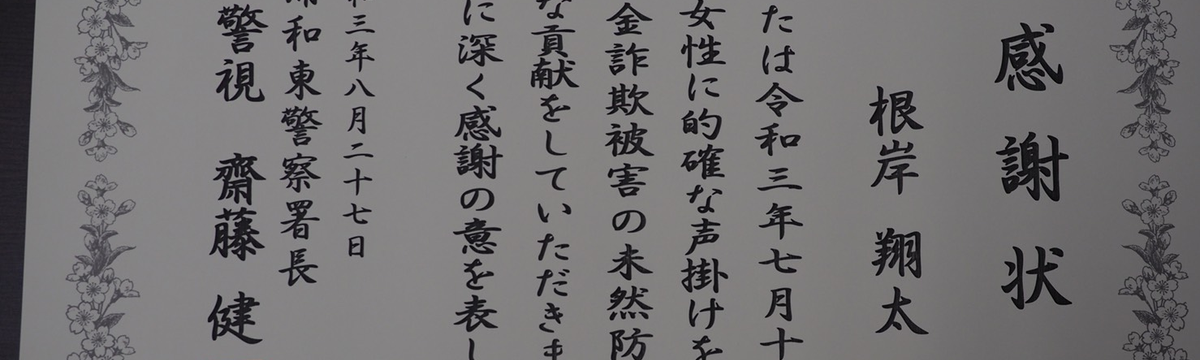 感謝状
根岸 翔太
たは令和三年七月十
女性に的確な声掛けを
金詐欺被害の未然防
な貢献をしていただきま
に深く感謝の意を表し
三年八月二十七日
和東警察署長
警視 齋藤 健